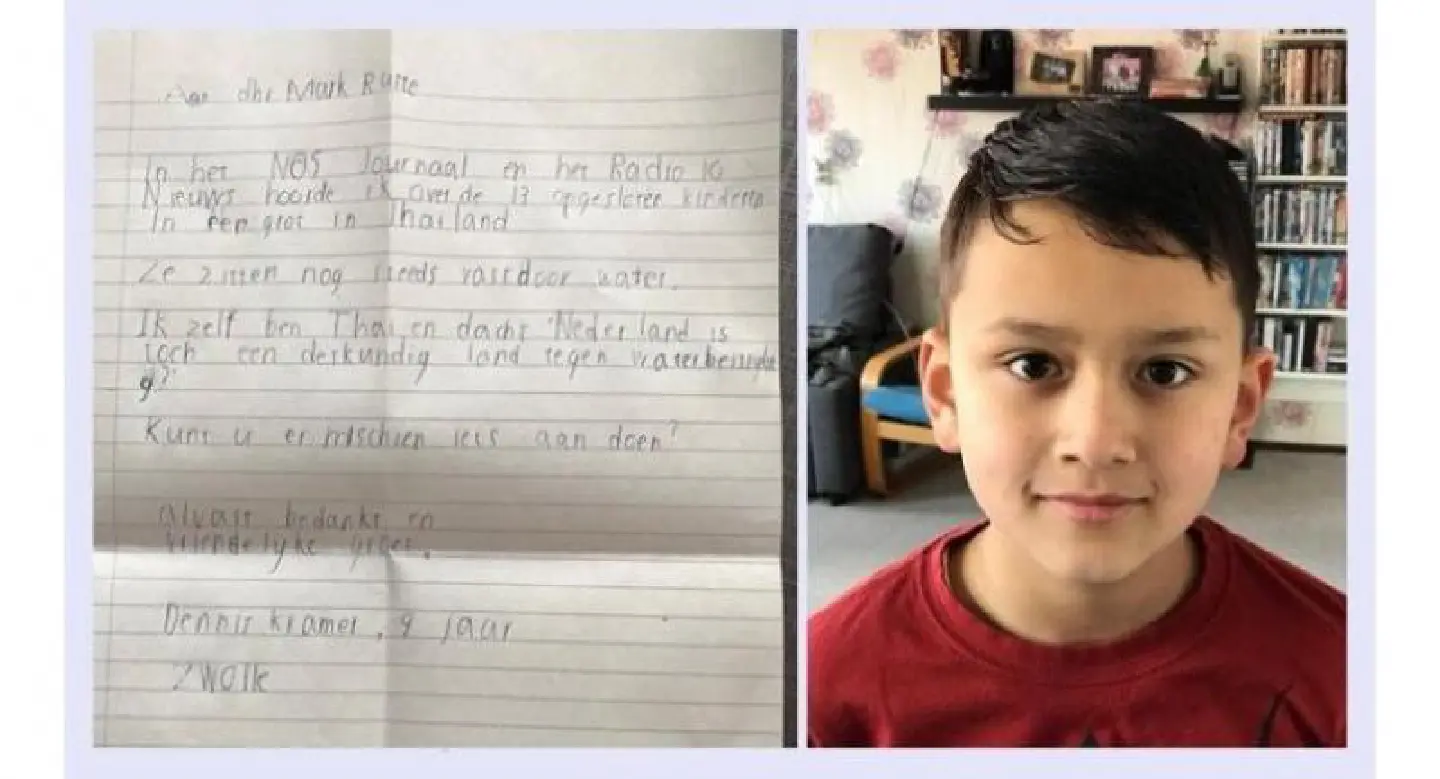 Aan dhr Mark Rutte
In het NOS Journaal en het Radio 10
Nieuws hoorde ik over de 13 opgesloten kinderen
In een grot in Thailand
Ze zitten nog steeds vast door water.
Ik zelf ben Thai en dacht Nederland is
toch een deskundig land tegen
g?
Kunt u er misschien iets aan doen?
alvast bedankt en
vriendelijke groet,
Dennis Kramer, 9 jaar
Zwolle